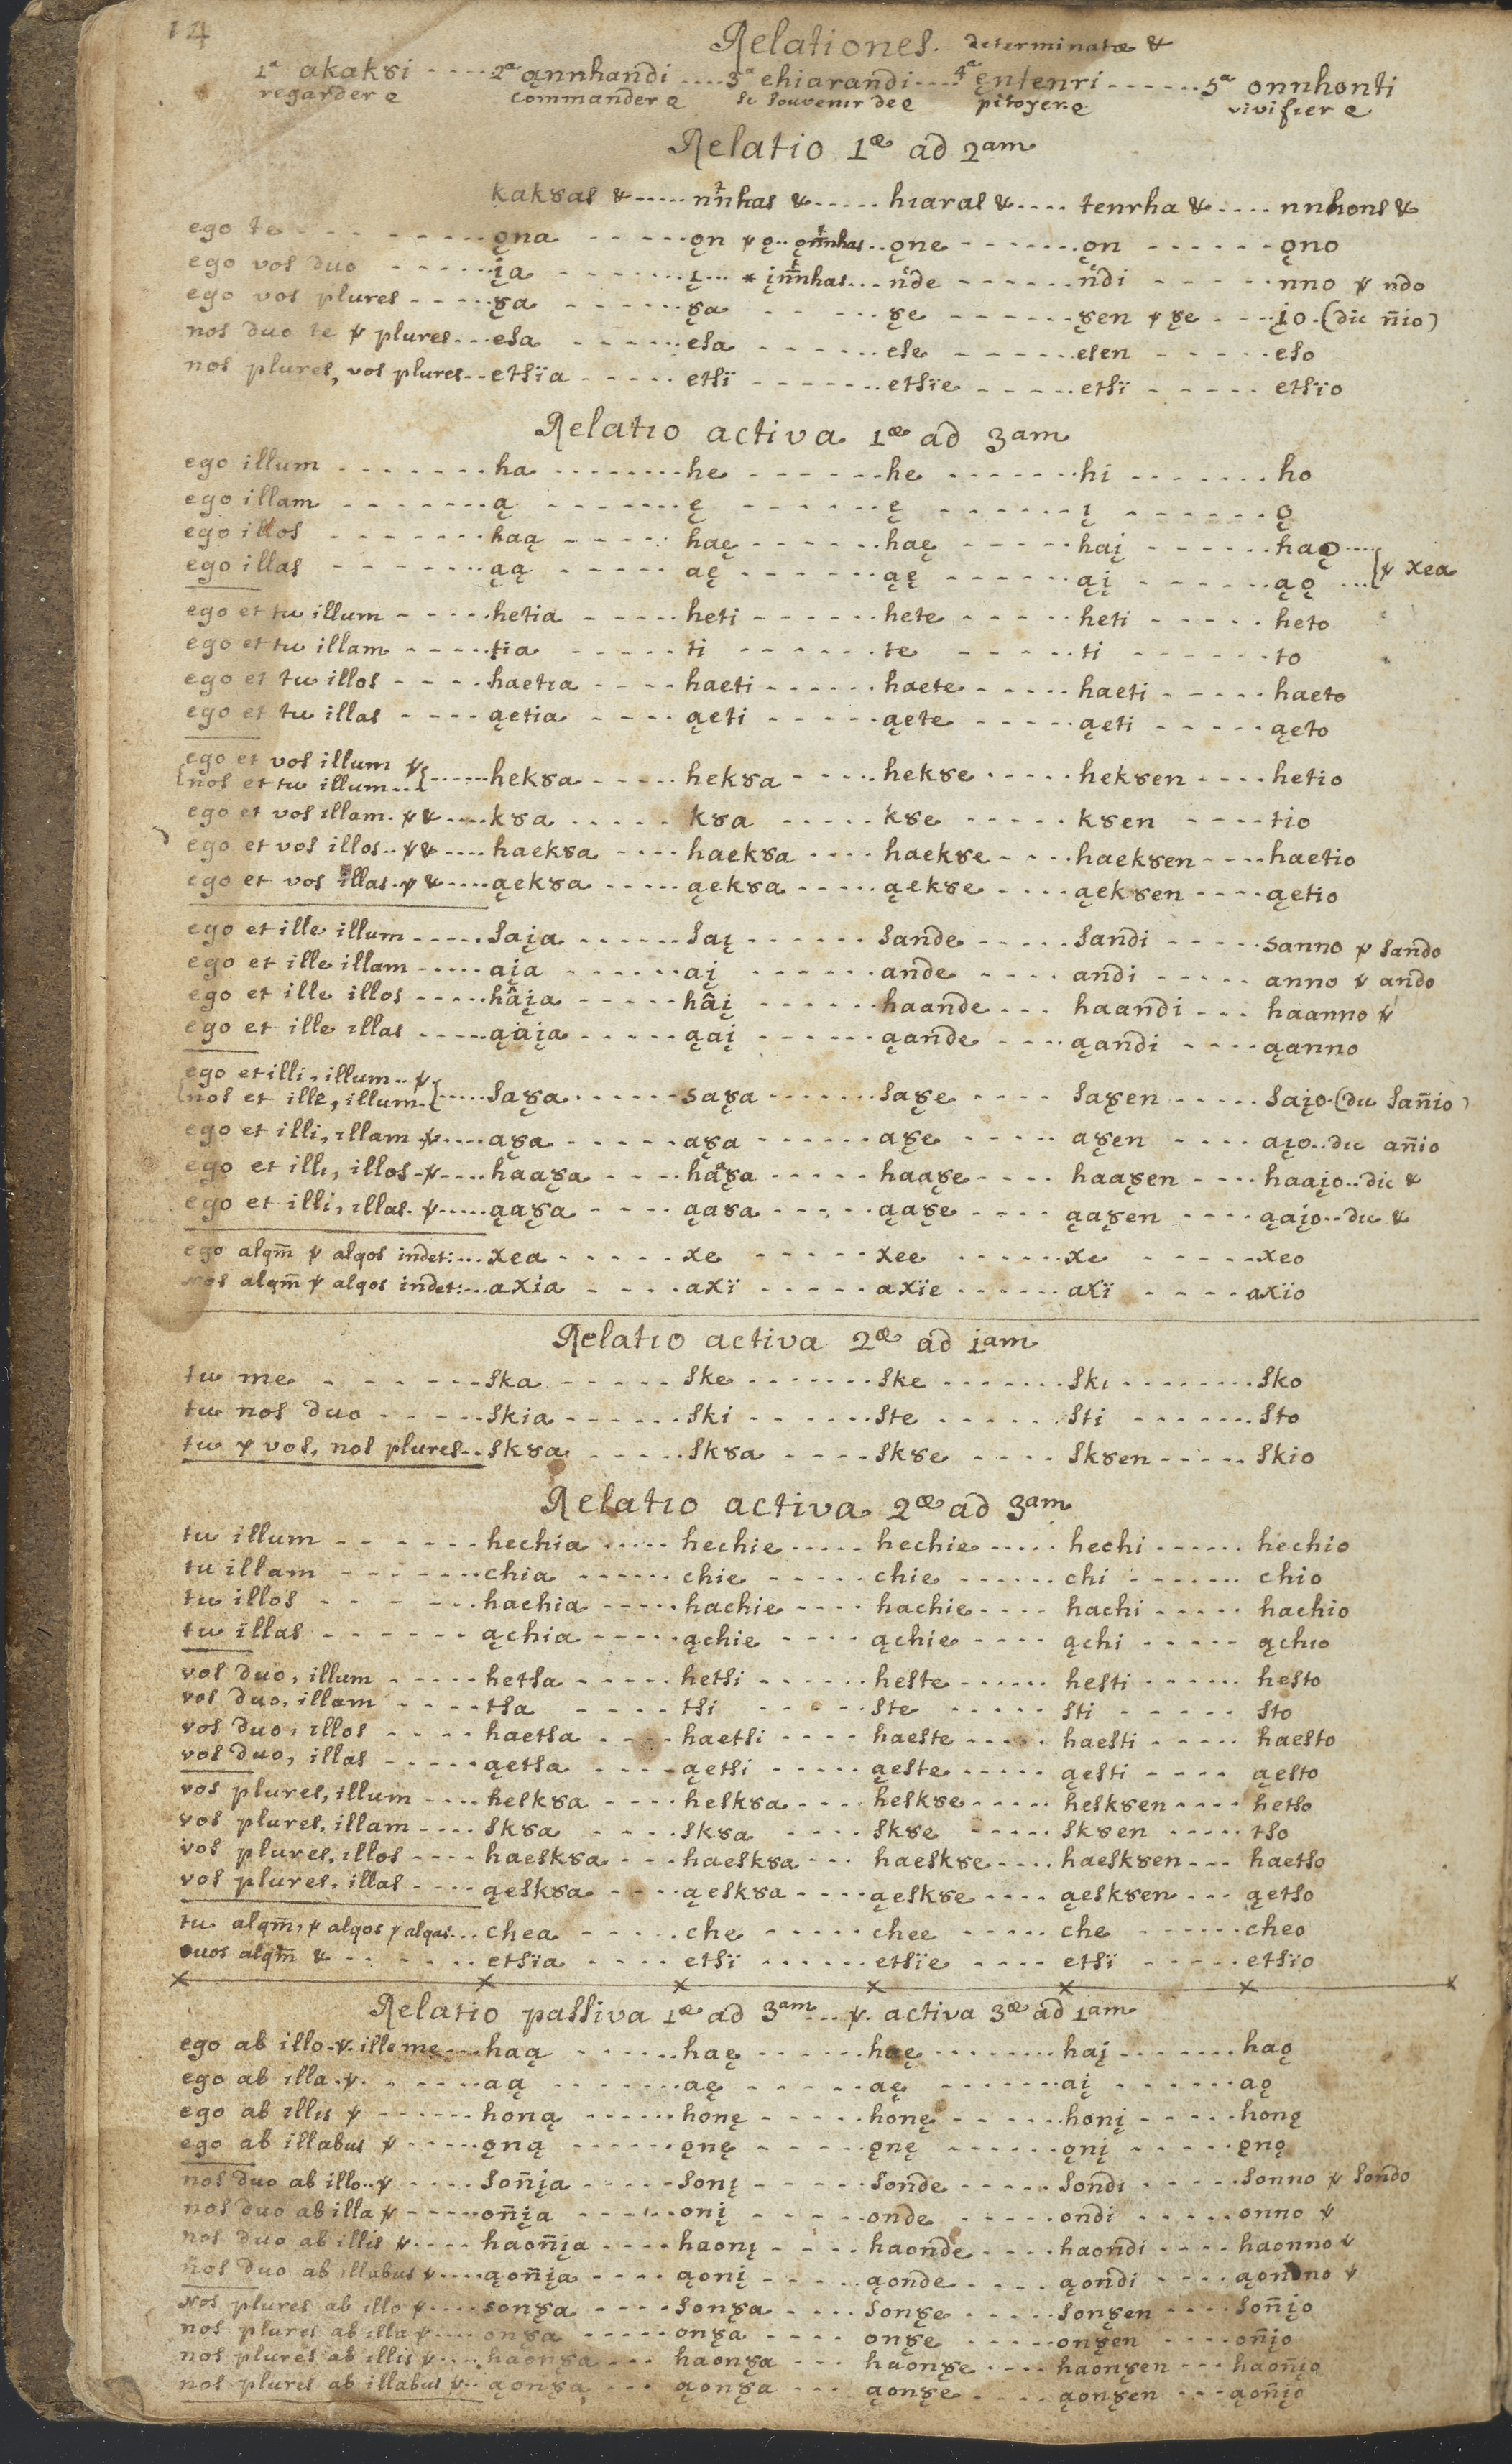 14
Relationes. determinatæ &
1ª akakȣi ---- 2ª ąnnhandi ---- 3ª ehiarandi ---- 4ª ęntenri ------ 5ª onnhonti
regarder q commander q se souvenir de q pitoyer q vivifier q
Relatio 1æ ad 2am
kakȣas & ----- nn̄has & ----- hiaras & ---- tenrha & ---- nnhons &
ego te ------- ǫna ----- ǫn ꝟ ǫ.. ǫn̄nhas.. ǫne ------- ǫn ------ ǫno
ego vos duo ----- įa ------- į... * įn̄nhas... nde ------ ndi ----- nno ꝟ ndo
ego vos plures ----- ȣ̨a ------ ȣ̨a ----- ȣ̨e ------ ȣ̨en ꝟ ȣ̨e ---- įo. (dic ñio)
nos duo te ꝟ plures... esa ------ esa ------ ese ------ esen ----- eso
nos plures, vos plures.. etsïa ----- etsï ------- etsïe ----- etsï ----- etsïo
Relatio activa 1æ ad 3am
ego illum ------- ha ------- he ------ he ------- hi ------- ho
ego illam ------- ą ------- ę ------ ę ------ į ------ ǫ
ego illos ------- haą ----- haę ------ haę ----- haį ------ haǫ ....
ego illas ------- ąą ----- aę ------ ąę ------ ąį ------ ąǫ ... } ꝟ xea
ego et tu illum ----- hetia ----- heti ------ hete ----- heti ----- heto
ego et tu illam ----- tia ----- ti ------ te ----- ti ------ to
ego et tu illos ---- haetia ---- haeti ------ haete ----- haeti ----- haeto
ego et tu illas ---- ąetia ---- ąeti ----- ąete ----- ąeti ----- ąeto
ego et vos illum ꝟ
nos et tu illum... } ------ hekȣa ----- hekȣa ---- hekȣe ----- hekȣen ---- hetio
ego et vos illam. ꝟ & .... kȣa ----- kȣa ----- kȣe ----- kȣen ---- tio
ego et vos illos.. ꝟ & .... haekȣa ---- haekȣa ---- haekȣe ---- haekȣen ---- haetio
ego et vos illas. ꝟ & ..... ąekȣa ----- ąekȣa ----- ąekȣe ---- ąekȣen ---- ąetio
ego et ille illum ----- saįa ------ saį ------ sande ----- sandi ----- sanno ꝟ sando
ego et ille illam ----- aįa ------ aį ------ ande ---- andi ---- anno ꝟ ando
ego et ille illos ----- hâįa ----- hâį ------ haande ... haandi ... haanno ꝟ
ego et ille illas ----- ąaįa ----- ąaį ------ ąande ---- ąandi ---- ąanno
ego et illi, illum.. ꝟ
nos et ille, illum. } ----- saȣ̨a ------ saȣ̨a ------ saȣ̨e ---- saȣ̨en ----- saįo. (dic sañio)
ego et illi, illam ꝟ .... aȣ̨a ----- aȣ̨a ------ aȣ̨e ----- aȣ̨en ---- aįo.. dic añio
ego et illi, illos. ꝟ .... haaȣ̨a ---- hâȣ̨a ----- haaȣ̨e ---- haaȣ̨en ---- haaįo.. dic &
ego et illi, illas. ꝟ ..... ąaȣ̨a ---- ąaȣa ----- ąaȣ̨e ---- ąaȣ̨en ---- ąaįo.. dic &
ego alqm̄ ꝟ alqos indet: ... xea ----- xe ----- xee ------ xe ------ xeo
nos alqm̄ ꝟ alqos indet: ... axia ---- axï ----- axïe ------ axï ---- axïo
Relatio activa 2æ ad 1am
tu me ------- ska ----- ske ------- ske ------- ski -------- sko
tu nos duo ----- skia ------ ski ------ ste ------ sti ------- sto
tu ꝟ vos, nos plures.. skȣa ----- skȣa ---- skȣe ---- skȣen ----- skio
Relatio activa 2æ ad 3am
tu illum ------ hechia ----- hechie ----- hechie ----- hechi ------ hechio
tu illam ------- chia ------ chie ----- chie ------ chi ------- chio
tu illos ------ hachia ----- hachie ---- hachie ---- hachi ----- hachio
tu illas ------ ąchia ----- ąchie ---- ąchie ---- ąchi ----- ąchio
vos duo, illum ----- hetsa ----- hetsi ------ heste ------ hesti ------ hesto
vos duo, illam ---- tsa ---- tsi ----- ste ----- sti ----- sto
vos duo, illos ---- haetsa ---- haetsi ----- haeste ----- haesti ----- haesto
vos duo, illas ----- ąetsa ---- ąetsi ----- ąeste ----- ąesti ---- ąesto
vos plures, illum ---- heskȣa ---- heskȣa ---- heskȣe ----- heskȣen ---- hetso
vos plures, illam ---- skȣa ---- skȣa ---- skȣe ----- skȣen ----- tso
vos plures, illos ---- haeskȣa --- haeskȣa --- haeskȣe ---- haeskȣen --- haetso
vos plures, illas ---- ąeskȣa ---- ąeskȣa ---- ąeskȣe ---- ąeskȣen --- ąetso
tu alqm̄, ꝟ alqos ꝟ alqas... chea ----- che ----- chee ----- che ------ cheo
vos alqm̄ & ------ etsïa ---- etsï ------ etsïe ---- etsï ----- etsïo
Relatio passiva 1æ ad 3am ... ꝟ. activa 3æ ad 1am
ego ab illo. ꝟ. ille me ... haą ------ haę ------ haę -------- haį ------- haǫ
ego ab illa. ꝟ. ----- aą ------- aę ------ aę ------- aį ------ aǫ
ego ab illis ꝟ ------ honą ------ honę ----- honę ------ honį ----- honǫ
ego ab illabus ꝟ ----- ǫną ------ ǫnę ----- ǫnę ------ ǫnį ----- ǫnǫ
nos duo ab illo.. ꝟ ---- soñįa ----- sonį ----- sonde ----- sondi ----- sonno ꝟ sondo
nos duo ab illa ꝟ ----- oñįa ----- onį ----- onde ----- ondi ----- onno ꝟ
nos duo ab illis ꝟ ---- haoñįa ---- haonį ---- haonde ---- haondi ---- haonno ꝟ
nos duo ab illabus ꝟ ---- ąoñįa ---- ąonį ---- ąonde ---- ąondi ---- ąonno ꝟ
nos plures ab illo ꝟ ---- sonȣ̨a ---- sonȣ̨a ---- sonȣ̨e ----- sonȣ̨en ---- soñįo
nos plures ab illa ꝟ ---- onȣ̨a ----- onȣ̨a ---- onȣ̨e ----- onȣ̨en ---- oñįo
nos plures ab illis ꝟ ---- haonȣ̨a --- haonȣ̨a --- haonȣ̨e ---- haonȣ̨en --- haoñįo
nos plures ab illabus ꝟ.. ąonȣ̨a --- ąonȣ̨a --- ąonȣ̨e ---- ąonȣ̨en --- ąoñįo